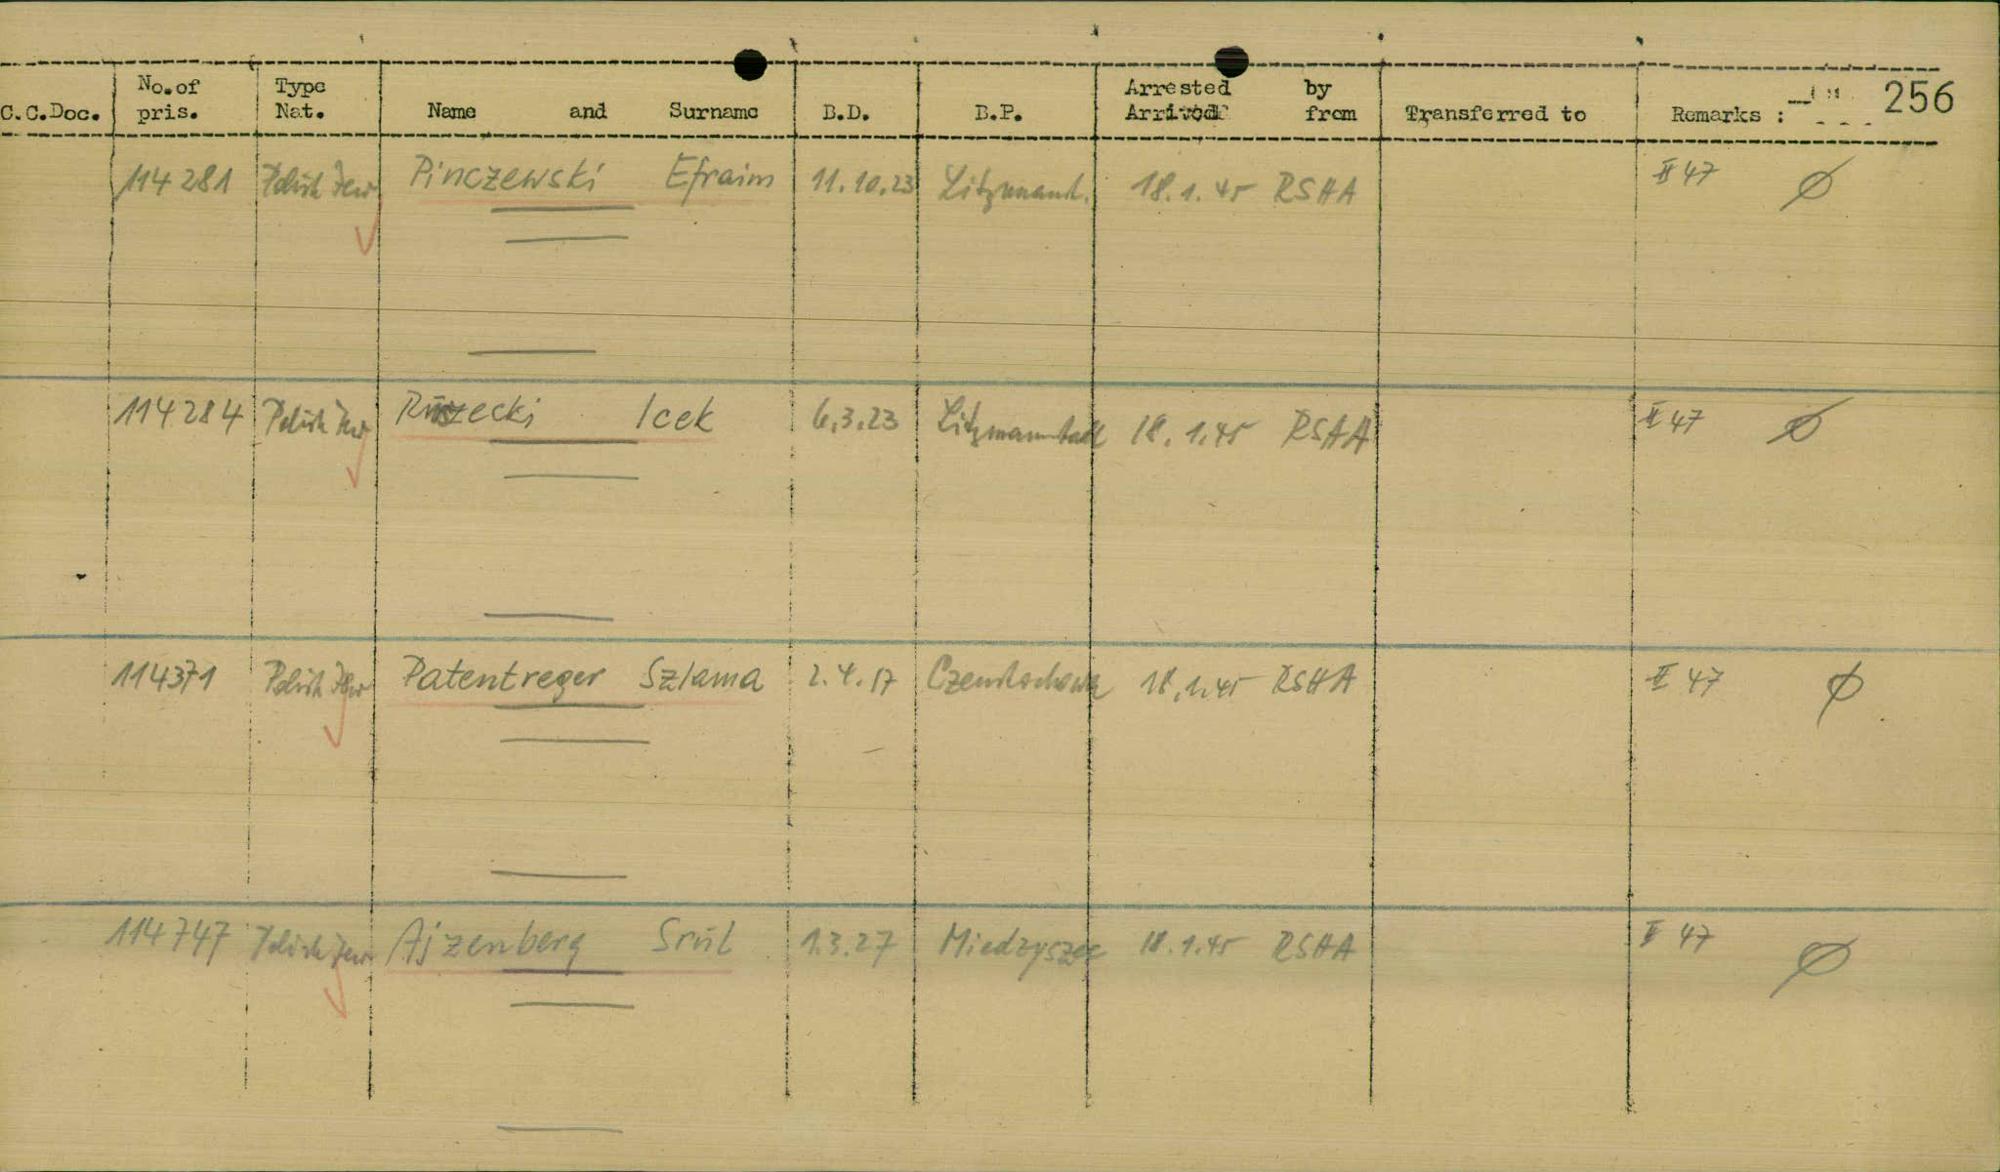 No. of Type Arrested by
C.C.Doc. pris. Nat. Name and Surname B.D. B.P. Arrived from Transferred to Remarks : 256
114281 Polish Jew Pinczewski Efraim 11.10.23 Litzmannst. 18.1.45 RSHA II 47 Ø
114284 Polish Jew Icek 6.3.23 Litzmannstadt 18.1.45 RSHA II 47 Ø
114371 Polish Jew Patentreger Szlama 2.4.17 Czenstochowa 18.1.45 RSHA II 47 Ø
114747 Polish Jew Ajzenberg Srul 1.3.27 Miedzyszec 18.1.45 RSHA II 47 Ø